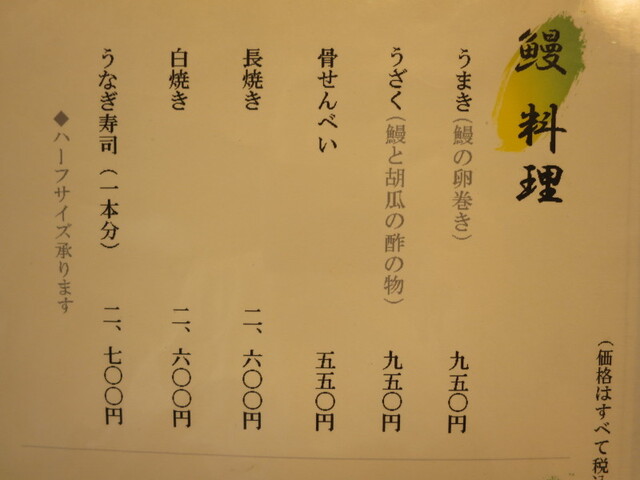 (価格はすべて税込
鰻料理
うまき(鰻の卵巻き) 九五〇円
うざく(鰻と胡瓜の酢の物) 九五〇円
骨せんべい 五五〇円
長焼き 二、六〇〇円
白焼き 二、六〇〇円
うなぎ寿司(一本分) 二、七〇〇円
◆ハーフサイズ承ります